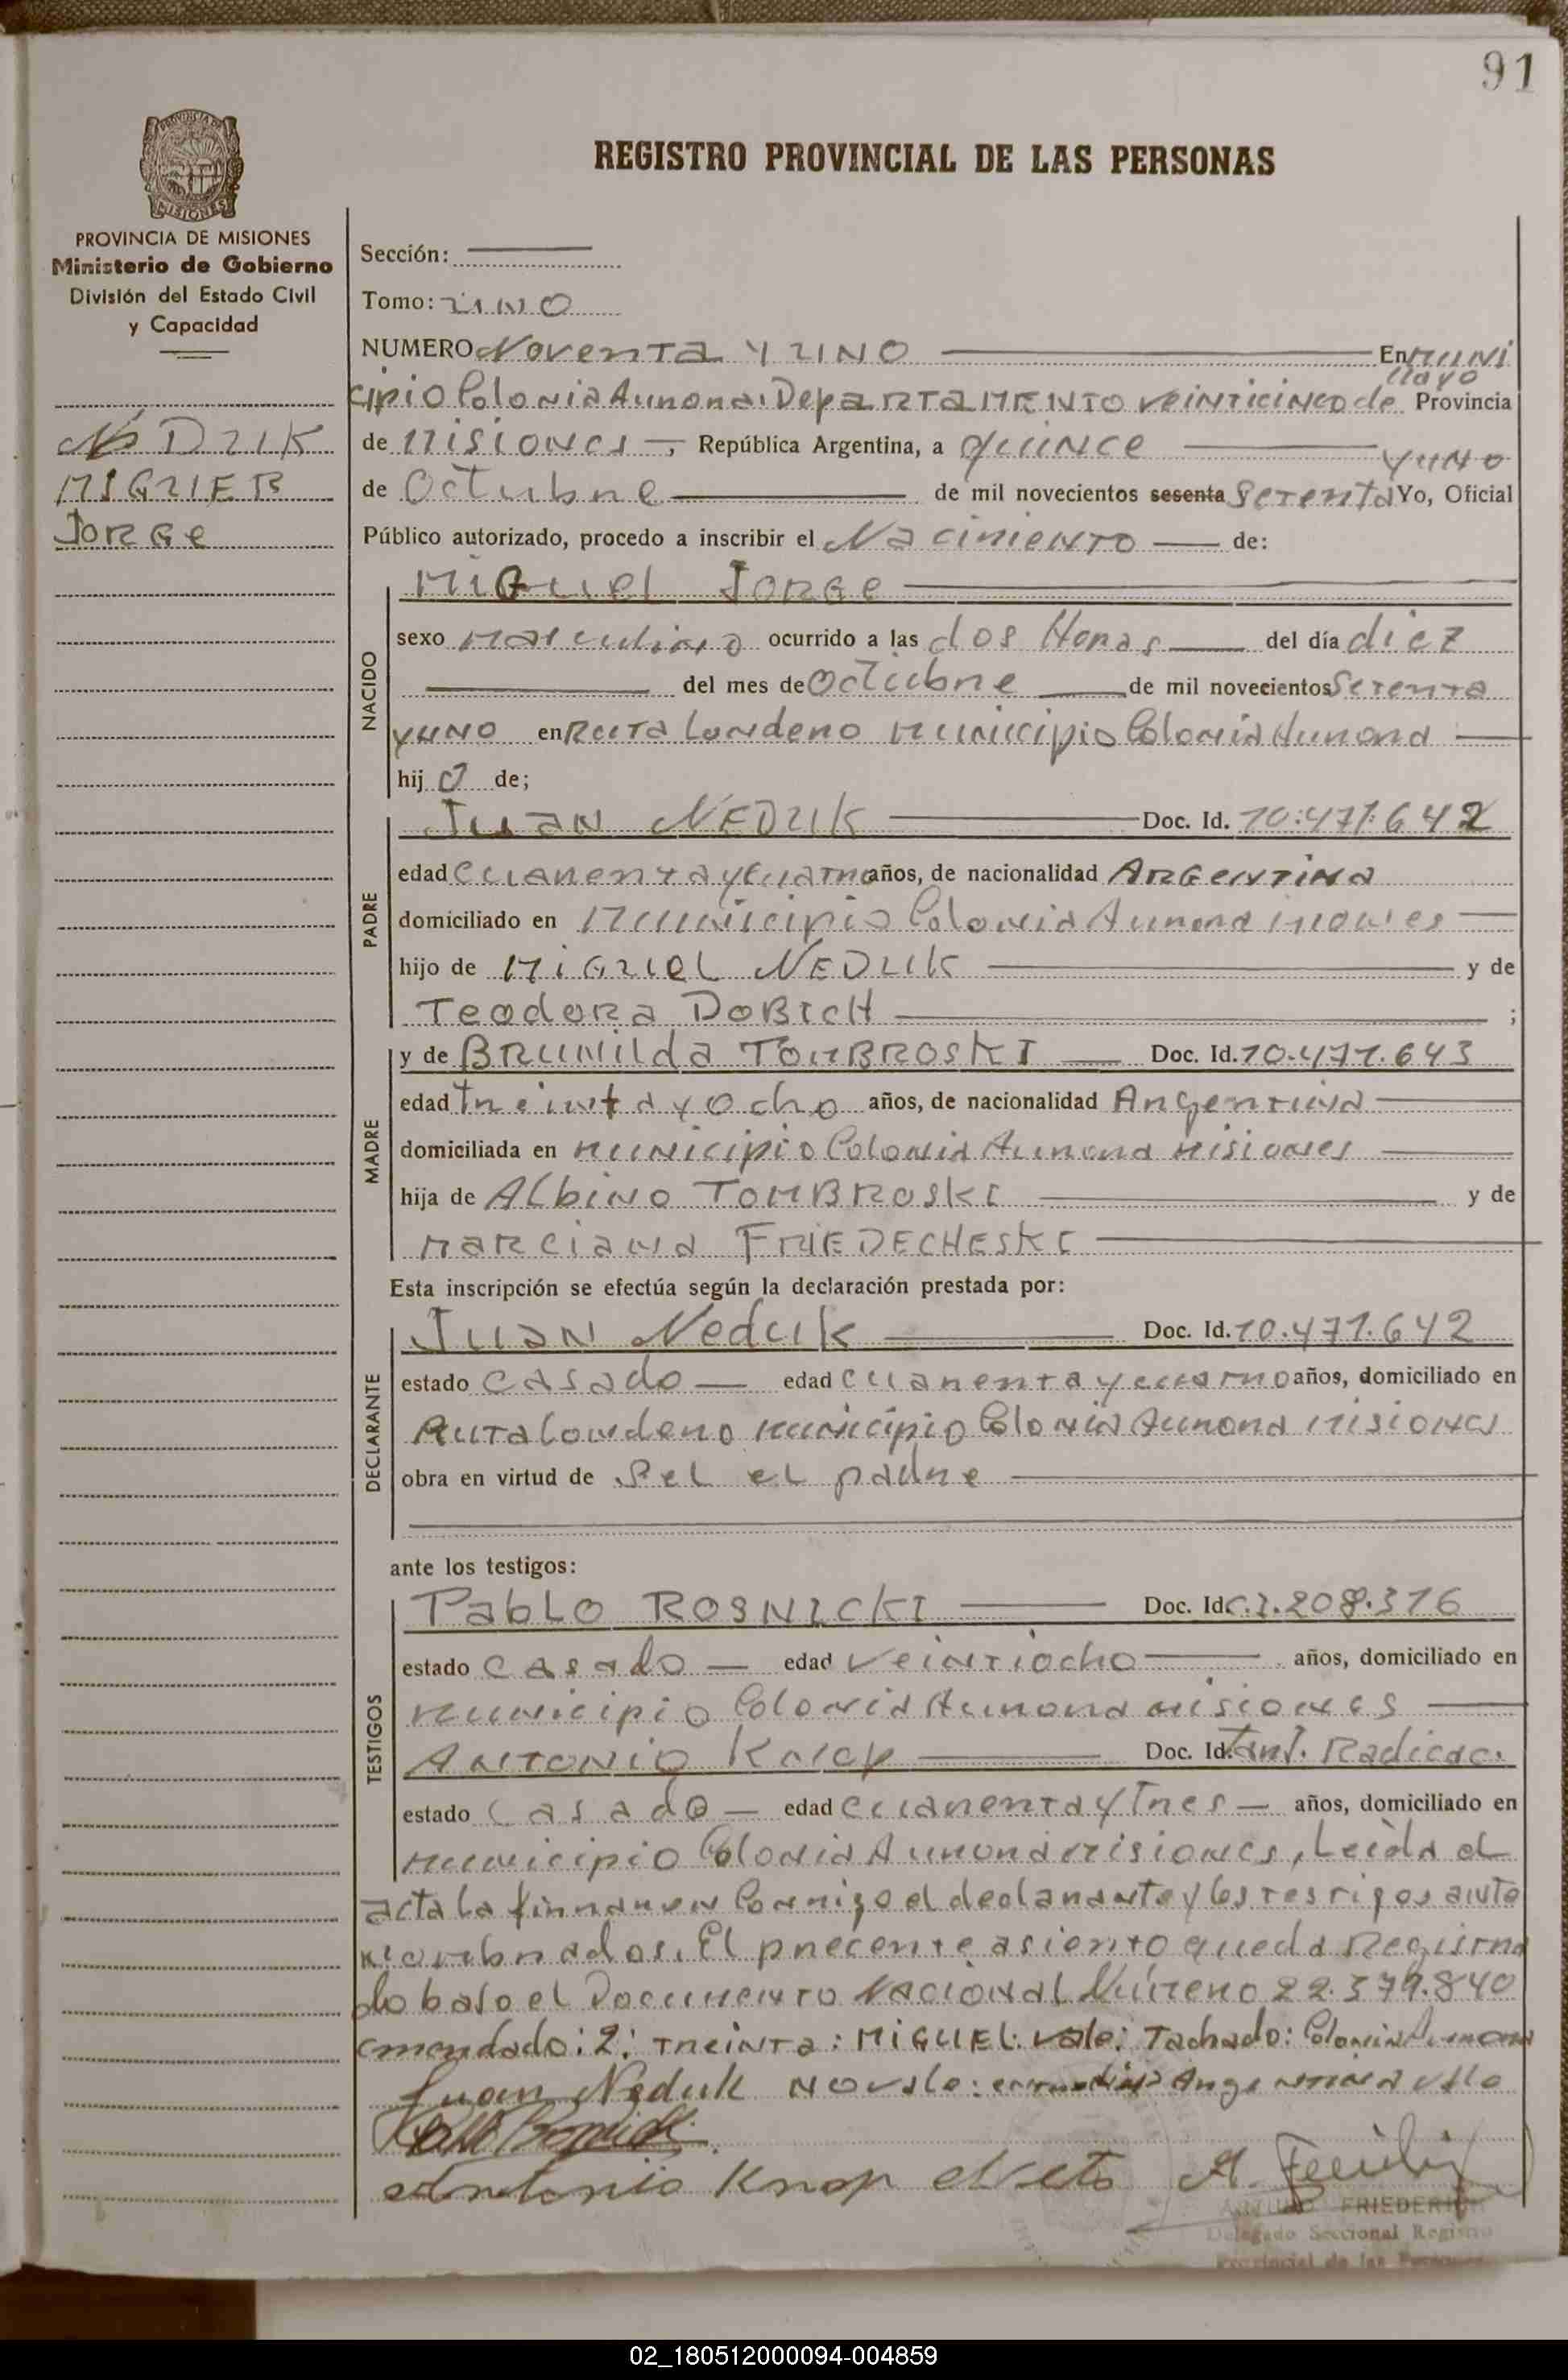 91
REGISTRO PROVINCIAL DE LAS PERSONAS
MISIONES
PROVINCIA DE MISIONES
Ministerio de Gobierno
División del Estado Civil
y Capacidad
NEDUK
MIGUEL
JORGE
Sección:
Tomo: UNO
NUMERO Noventa Y UNO En Muni
cipio Colonia Aurora. DepaRTaMENTO veinticinco de Mayo Provincia
de Misiones, República Argentina, a quince
de Octubre de mil novecientos sesenta Setenta YUNO Yo, Oficial
Público autorizado, procedo a inscribir el Nacimiento de:
NACIDO
Miguel Jorge
sexo Masculino ocurrido a las dos Horas del día diez
del mes de Octubre de mil novecientos Setenta
YUNO en Ruta Londero Municipio Colonia Aurora
hijo de;
PADRE
Juan NEDUK Doc. Id. 10.471.642
edad cuarenta y cuatro años, de nacionalidad Argentina
domiciliado en Municipio Colonia Aurora Misiones
hijo de Miguel NEDUK y de
Teodora DOBICH ;
MADRE
y de BRUNILda TOMBROSKI Doc. Id. 10.471.643
edad treinta y ocho años, de nacionalidad Argentina
domiciliada en Municipio Colonia Aurora Misiones
hija de Albino TOMBROSKI y de
Marciana FRIEDECHESKI
Esta inscripción se efectúa según la declaración prestada por:
DECLARANTE
Juan Neduk Doc. Id. 10.471.642
estado casado edad cuarenta y cuatro años, domiciliado en
Ruta Londero Municipio Colonia Aurora Misiones
obra en virtud de Sel el padre
ante los testigos:
TESTIGOS
Pablo ROSNICKI Doc. Id. C.I. 208.316
estado casado edad veintiocho años, domiciliado en
Municipio Colonia Aurora Misiones
Antonio Doc. Id. Radicac.
estado casado edad cuarenta y tres años, domiciliado en
Municipio Colonia Aurora Misiones, Leida el
acta la firman en Conmigo el declarante y los testigos ante
nombrados. El precente asiento queda Registra
do bajo el Documento Nacional Número 22.379.840
emendado: 2: treinta: MIGUEL: vale: Tachado: Colonia Aurora
Juan Neduk No vale: Argentina vale
Antonio Knop Neto
ARTURO FRIEDERICH
Delegado Seccional Registro
Provincial de las Personas
02_180512000094-004859